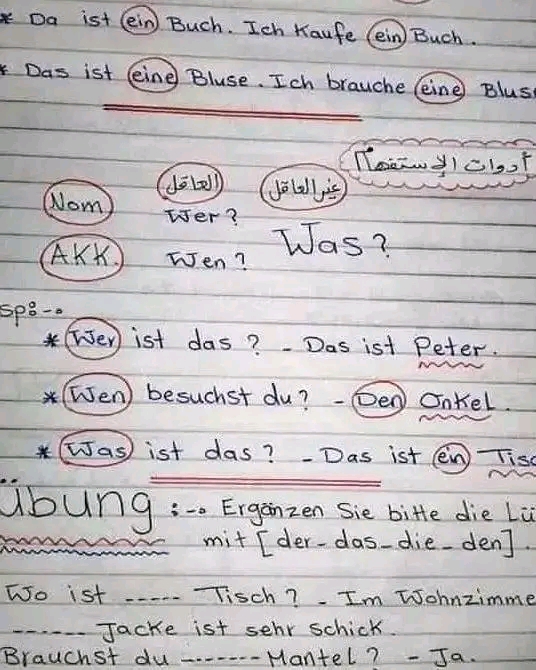 * Da ist ein Buch. Ich Kaufe ein Buch.
* Das ist eine Bluse. Ich brauche eine Bluse
أدوات الإستفهام
العاقل غير العاقل
Nom Wer?
Was?
AKK. Wen?
sp:-
* Wer ist das? - Das ist Peter.
* Wen besuchst du? - Den Onkel.
* Was ist das? - Das ist ein Tisc
Übung :- Ergänzen Sie bitte die Lü
mit [der-das-die-den].
Wo ist ----- Tisch? - Im Wohnzimme
------ Jacke ist sehr schick.
Brauchst du ------- Mantel? - Ja.